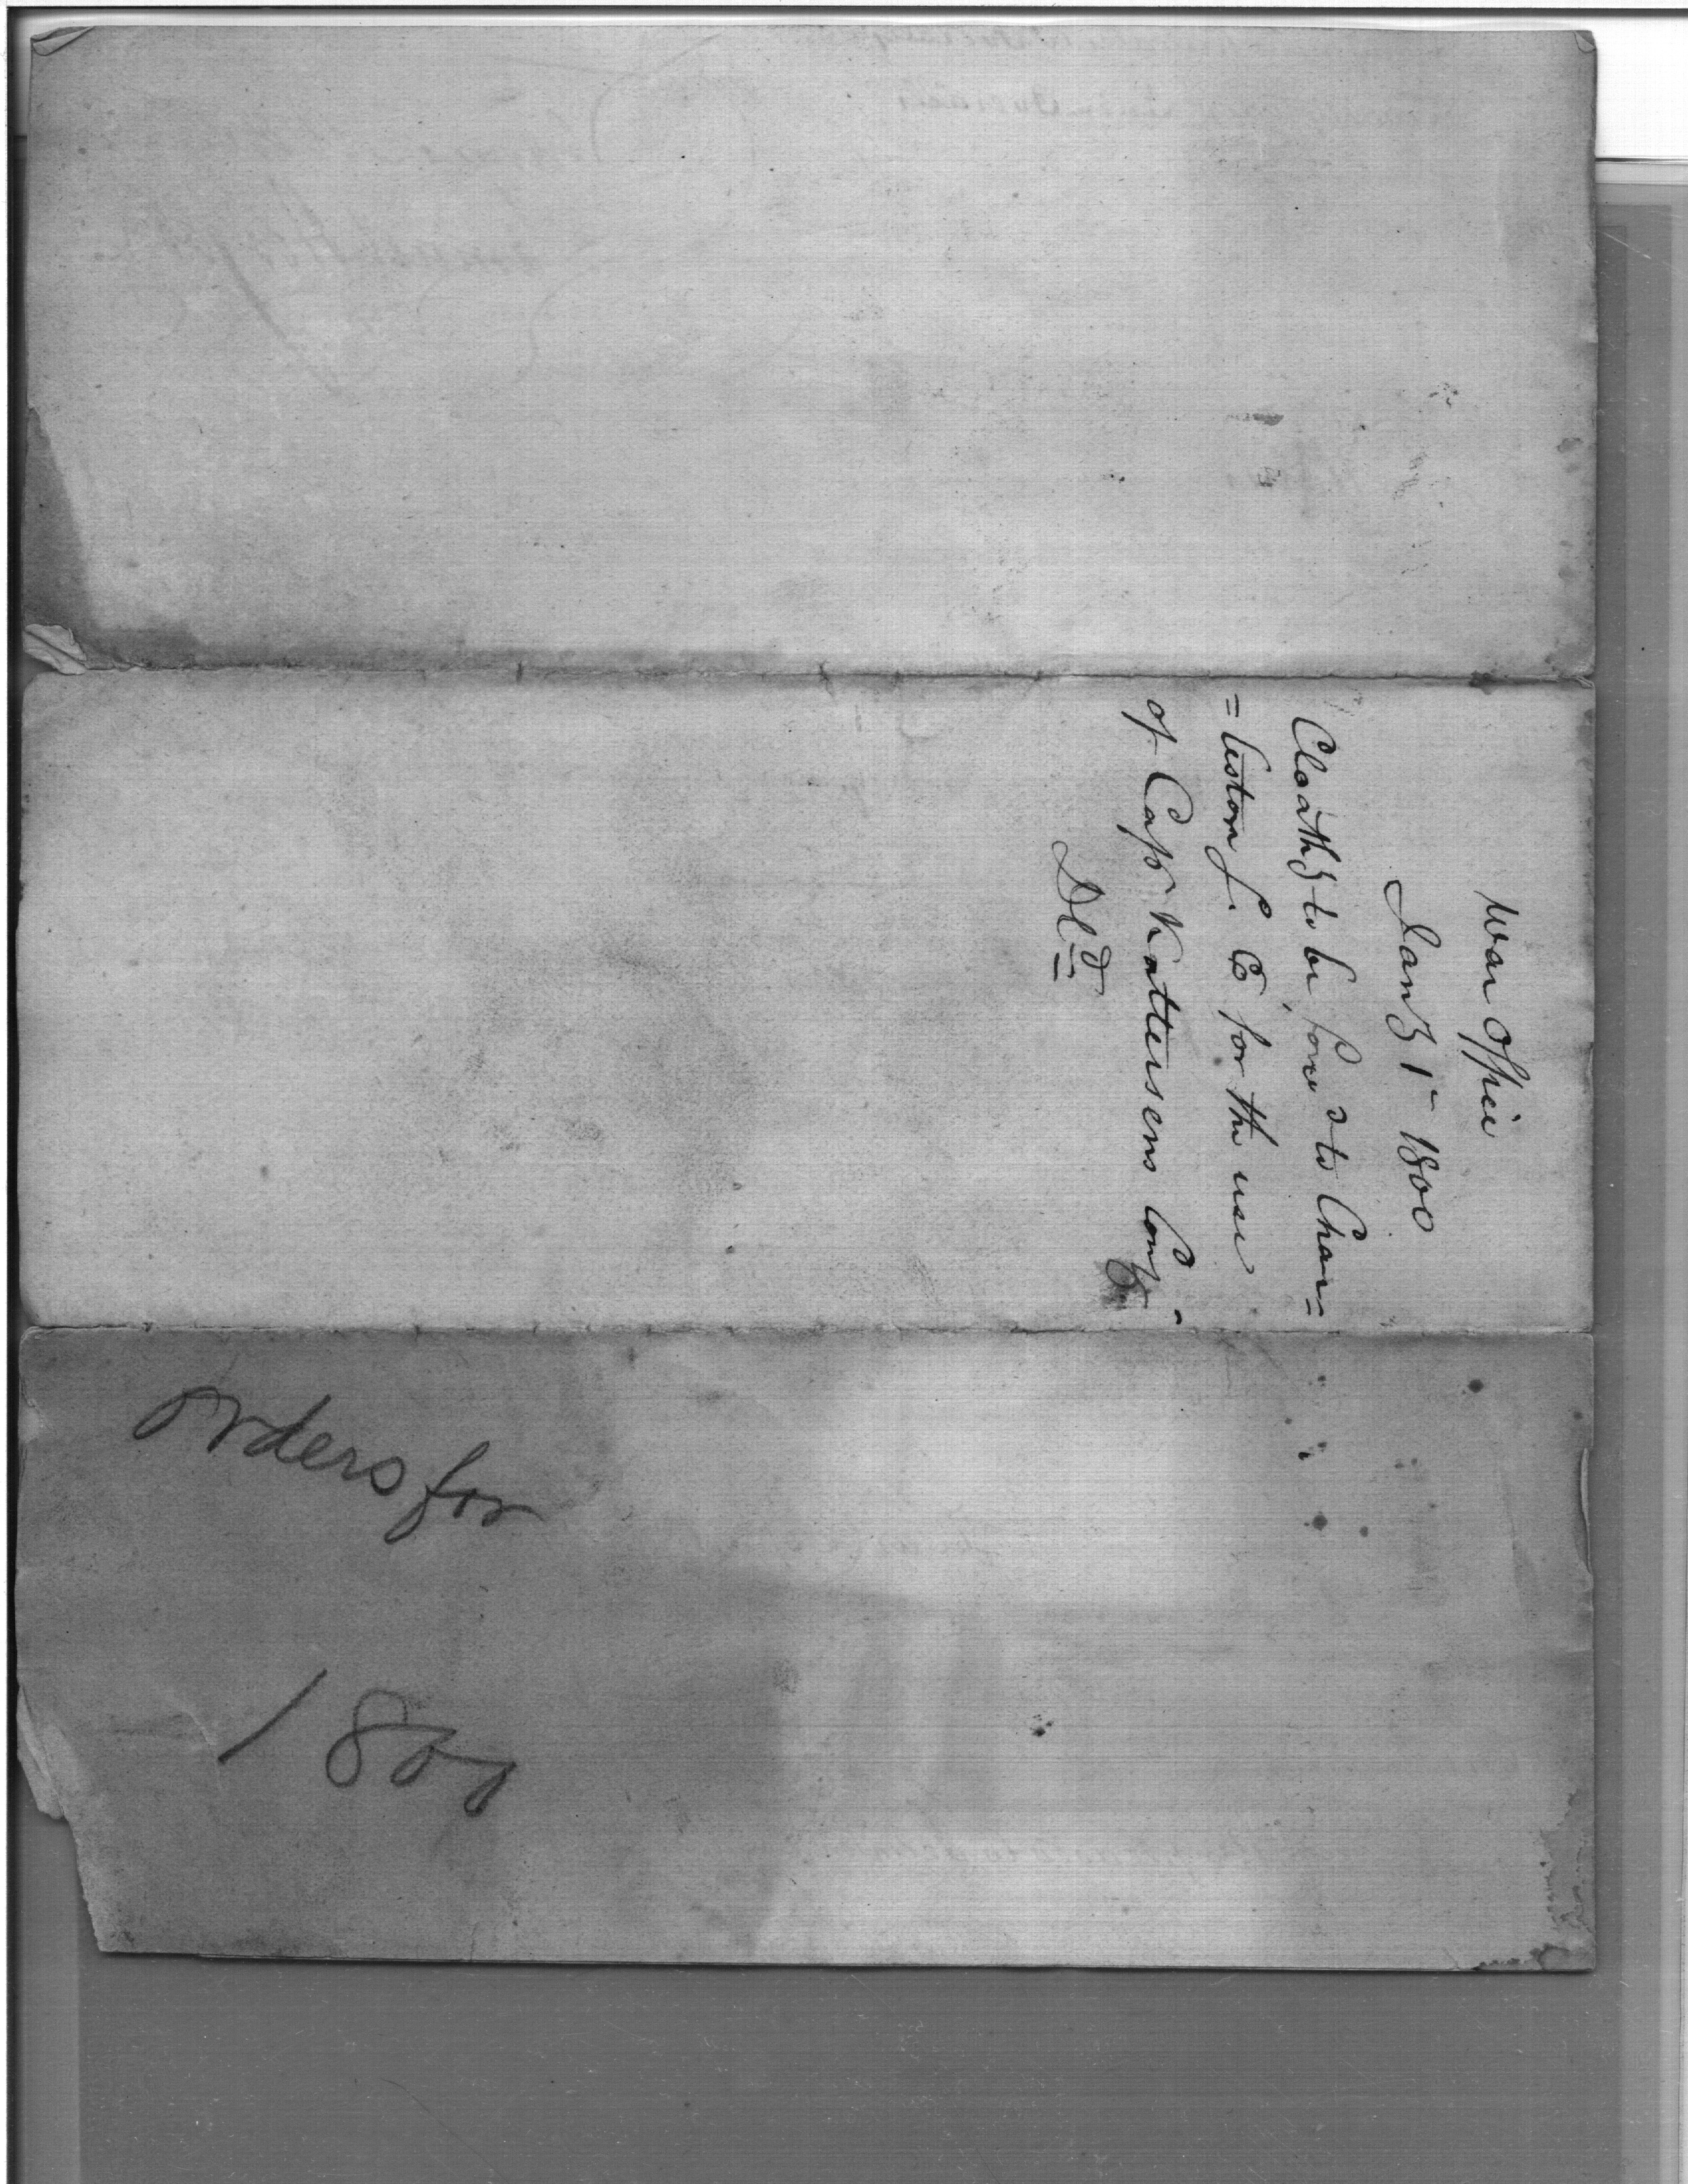 War Office
Jany 1- 1800
Cloathg to be forwd to Char=
=leston S. Co for the use
of Capt Kalteisens Compy-
Dld
Orders for
1800